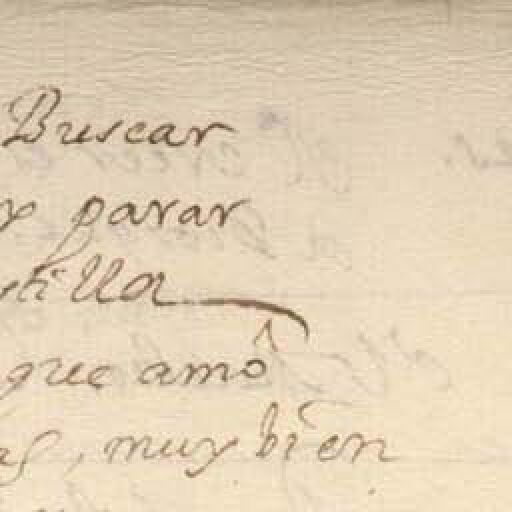 Buscar
y parar
stilla
que amô
as, muy bien